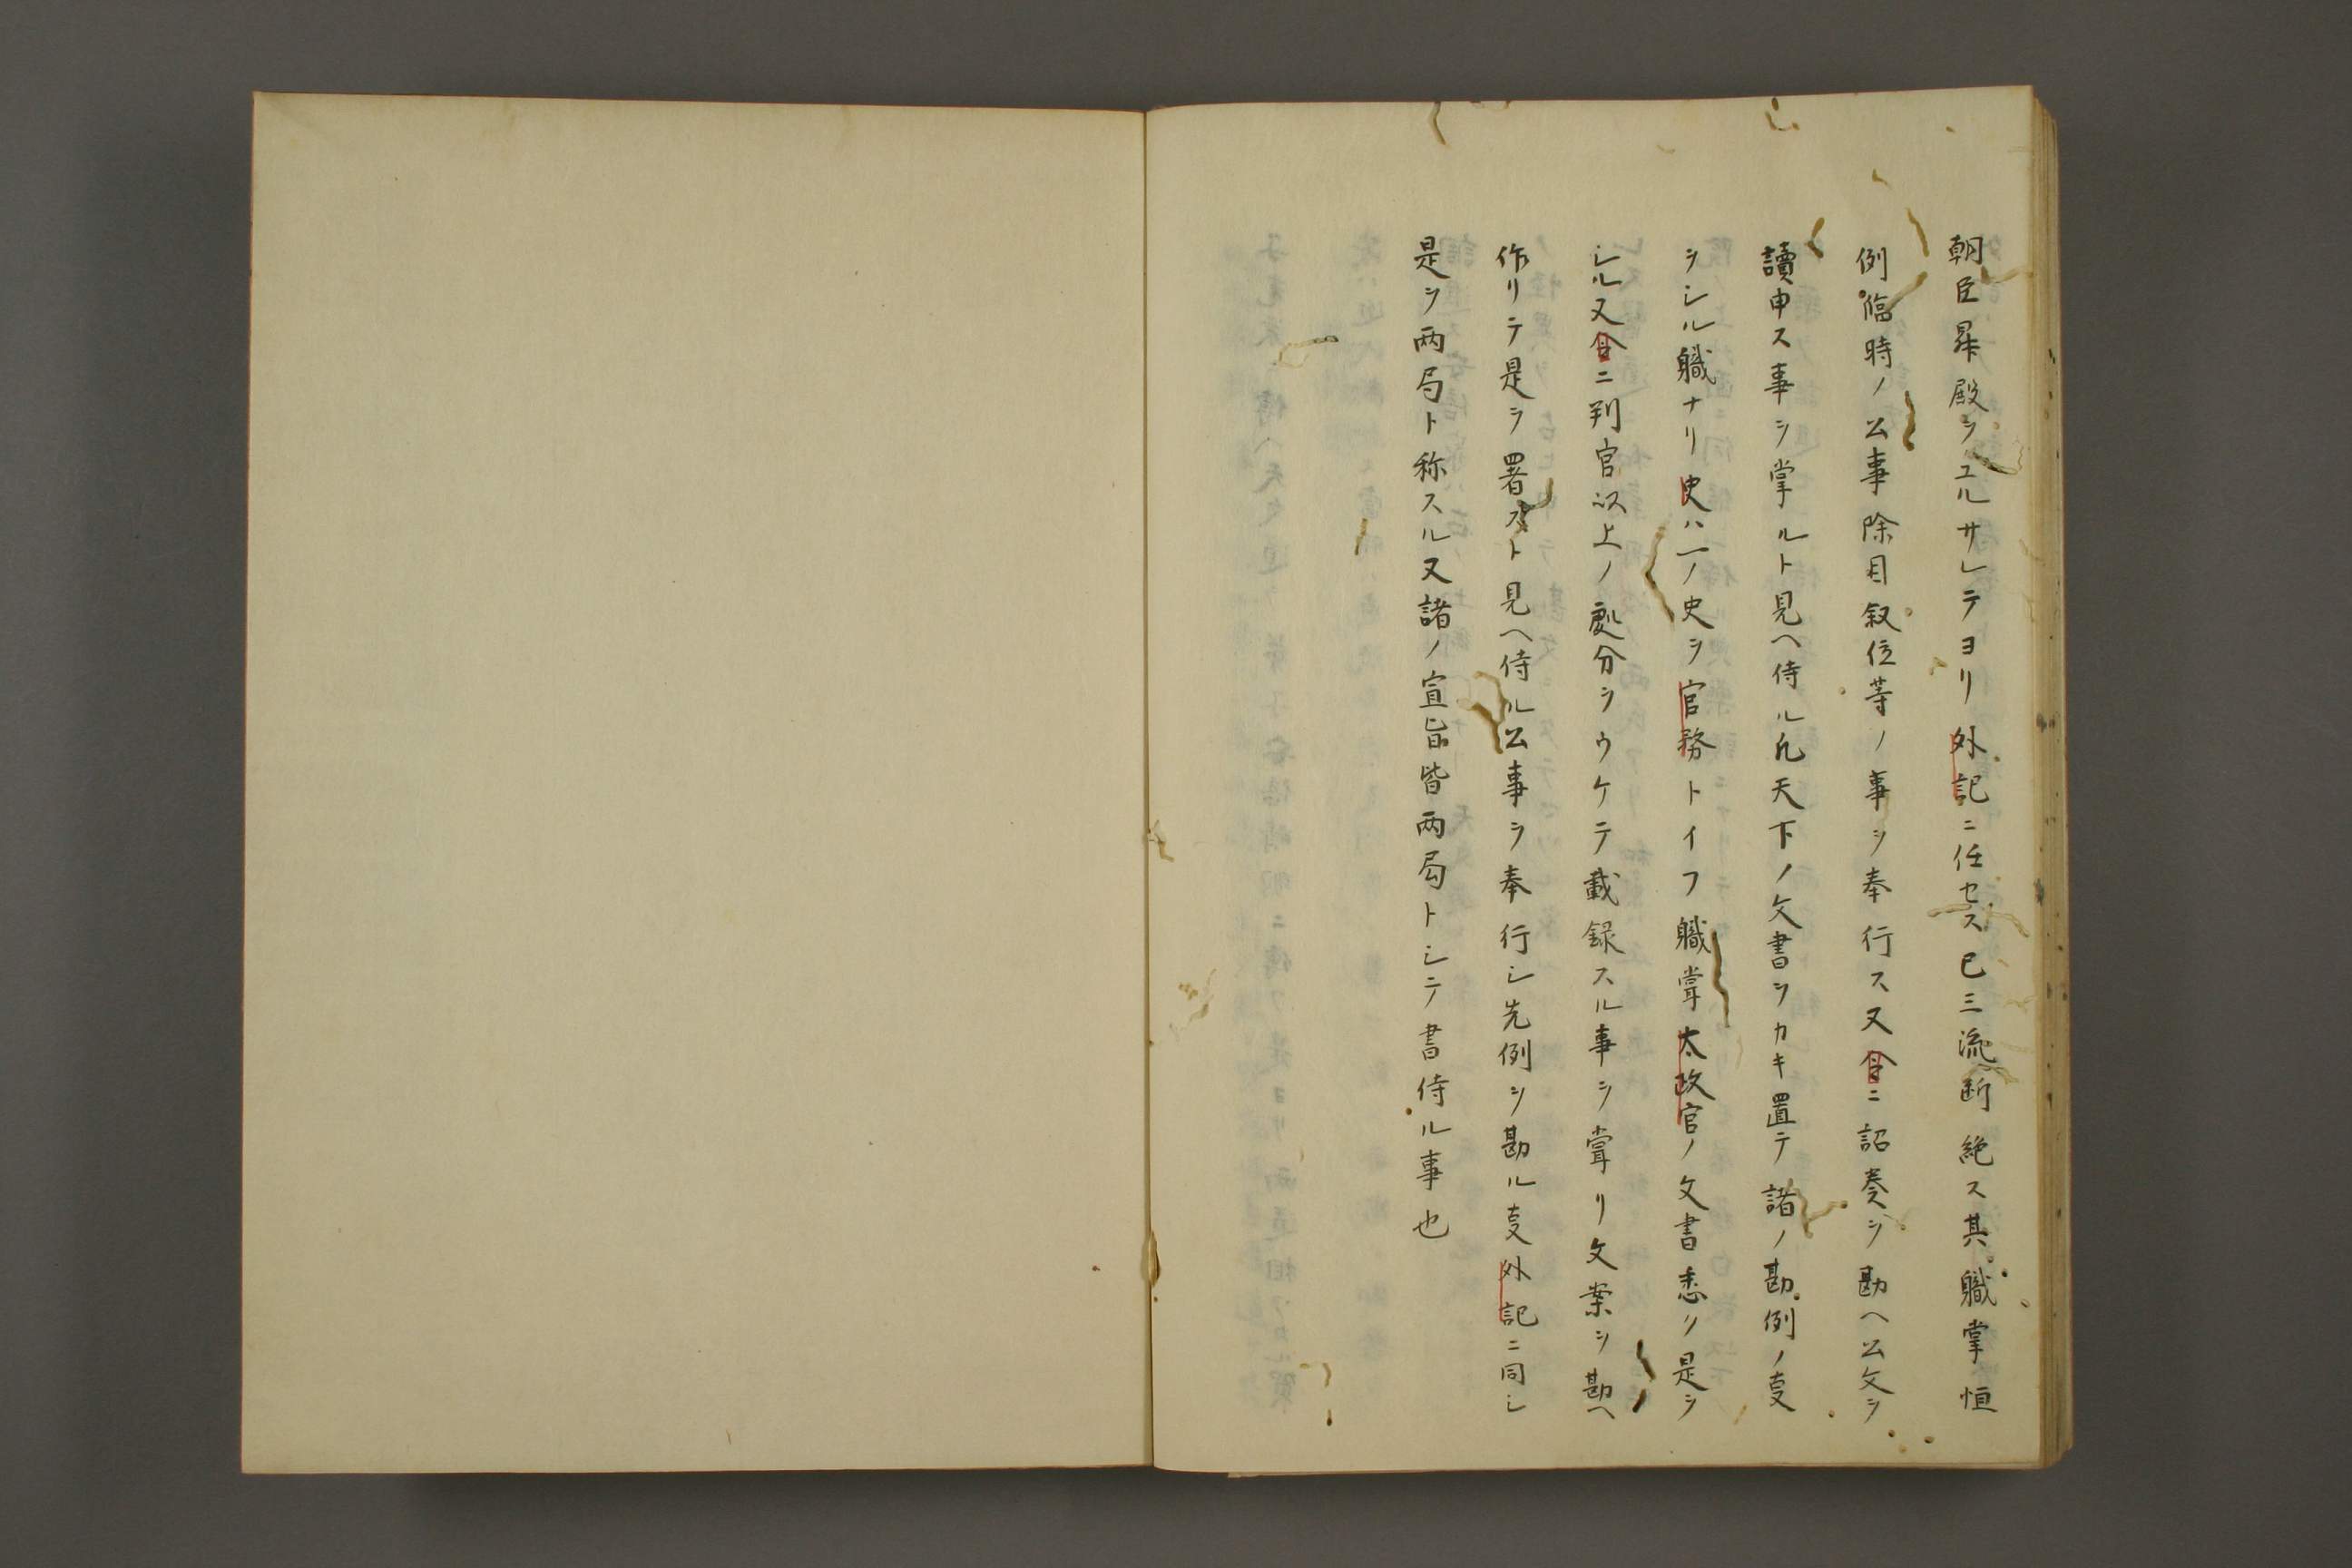 朝臣昇殿ヲユルサレテヨリ外記ニ任セス已三流断絶ス其職掌恒
例臨時ノ公事除目叙位等ノ事ヲ奉行ス又令ニ詔奏ヲ勘ヘ公文ヲ
讀申ス事ヲ掌ルト見ヘ侍ル凡天下ノ文書ヲカキ置テ諸ノ勘例ノ叓
ヲシル職ナリ史ハ一ノ史ヲ官務トイフ職掌太政官ノ文書悉ク是ヲ
シル又令ニ判官以上ノ處分ヲウケテ載録スル事ヲ掌リ文案ヲ勘ヘ
作リテ是ヲ署スト見ヘ侍ル公事ヲ奉行シ先例ヲ勘ル叓外記ニ同シ
是ヲ両局ト称スル又諸ノ宣旨皆両局トシテ書侍ル事也